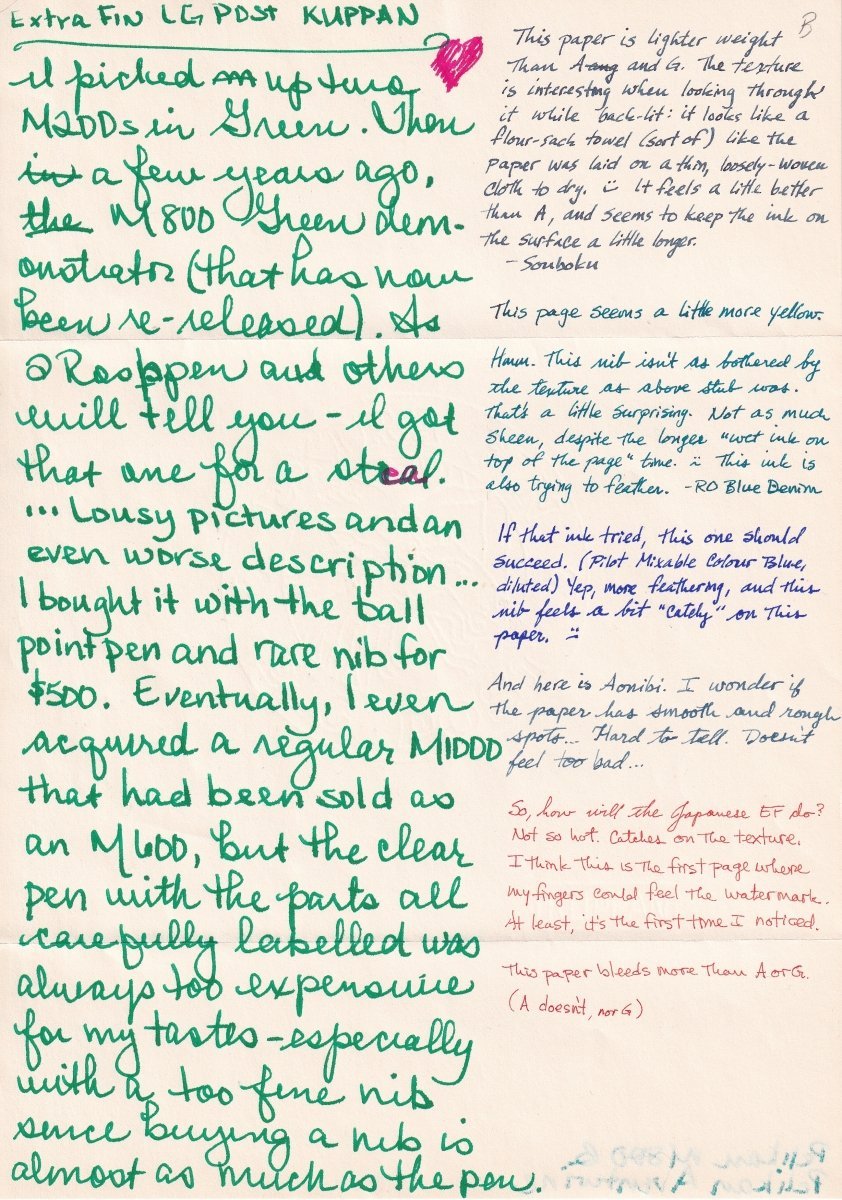 Extra Fin LG POST KUPPAN
I picked up two
M200s in Green. Then
in a few years ago,
the M800 Green dem-
onstrator (that has now
been re-released). As
@Rosppen and others
will tell you - I got
that one for a steal.
... Lousy pictures and an
even worse description...
I bought it with the ball
point pen and rare nib for
$500. Eventually, I even
acquired a regular M1000
that had been sold as
an M600, but the clear
pen with the parts all
carefully labelled was
always too expensive
for my tastes - especially
with a too fine nib
since buying a nib is
almost as much as the pen.
B
This paper is lighter weight
than A and G. The texture
is interesting when looking through
it while back-lit: it looks like a
flour-sack towel (sort of) like the
paper was laid on a thin, loosely-woven
cloth to dry. :) It feels a little better
than A, and seems to keep the ink on
the surface a little longer.
- Souboku
This page seems a little more yellow.
Hmm. This nib isn't as bothered by
the texture as above stub was.
That's a little surprising. Not as much
sheen, despite the longer "wet ink on
top of the page" time. :) This ink is
also trying to feather. - RO Blue Denim
If that ink tried, this one should
succeed. (Pilot Mixable Colour Blue,
diluted) Yep, more feathering, and this
nib feels a bit "catchy" on this
paper. :)
And here is Aonibi. I wonder if
the paper has smooth and rough
spots... Hard to tell. Doesn't
feel too bad...
So, how will the Japanese EF do?
Not so hot. Catches on the texture.
I think this is the first page where
my fingers could feel the watermark.
At least, it's the first time I noticed.
This paper bleeds more than A or G.
(A doesn't, nor G)